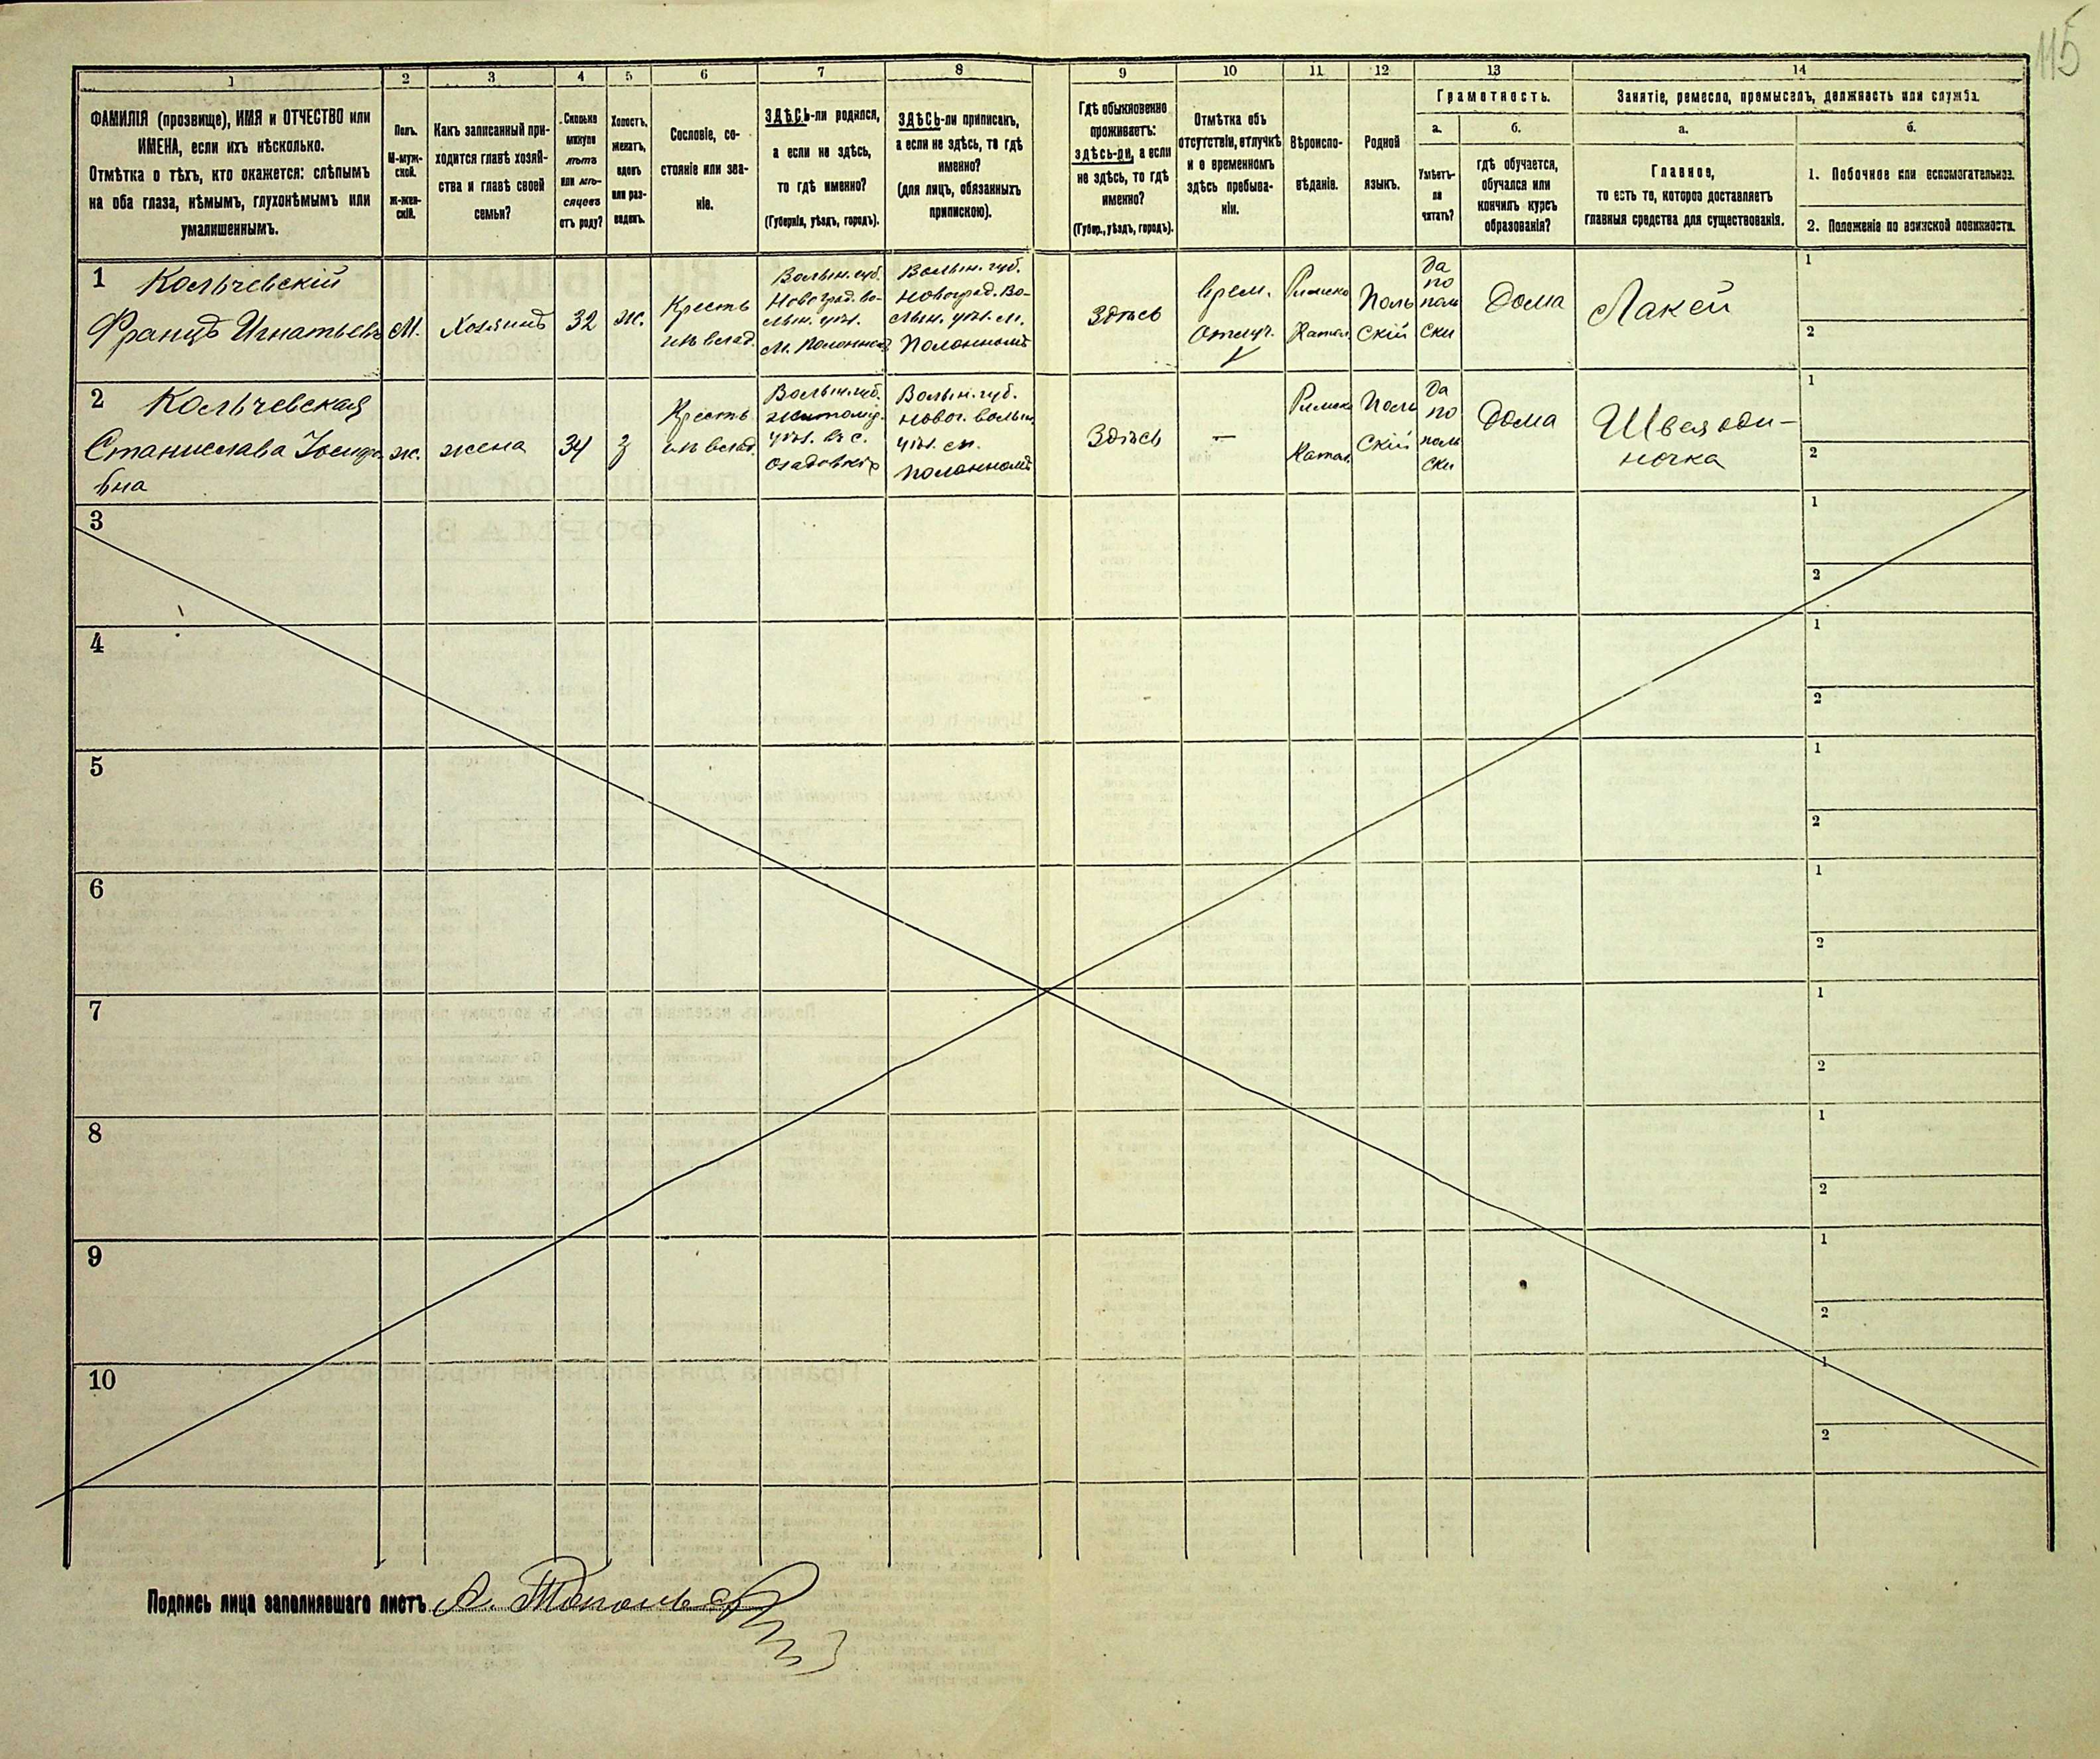 115
1
2
3
4
5
6
7
8
9
10
11
12
13
14
ФАМИЛІЯ (прозвище), ИМЯ и ОТЧЕСТВО или
ИМЕНА, если ихъ нѣсколько.
Отмѣтка о тѣхъ, кто окажется: слѣпымъ
на оба глаза, нѣмымъ, глухонѣмымъ или
умалишеннымъ.
Полъ.
М-муж-
ской.
ж-жен-
скій.
Какъ записанный при-
ходится главѣ хозяй-
ства и главѣ своей
семьи?
Сколько
минуло
лѣтъ
или мѣ-
сяцевъ
отъ роду?
Холостъ,
женатъ,
вдовъ
или раз-
веденъ.
Сословіе, со-
стояніе или зва-
ніе.
ЗДѢСЬ-ли родился,
а если не здѣсь,
то гдѣ именно?
(Губернія, уѣздъ, городъ).
ЗДѢСЬ-ли приписанъ,
а если не здѣсь, то гдѣ
именно?
(для лицъ, обязанныхъ
припискою).
Гдѣ обыкновенно
проживаетъ:
здѣсь-ли, а если
не здѣсь, то гдѣ
именно?
(Губер., уѣздъ, городъ).
Отмѣтка объ
отсутствіи, отлучкѣ
и о временномъ
здѣсь пребыва-
ніи.
Вѣроиспо-
вѣданіе.
Родной
языкъ.
Грамотность.
а.
Умѣетъ-
ли
читать?
б.
гдѣ обучается,
обучался или
кончилъ курсъ
образованія?
Занятіе, ремесло, промыселъ, должность или служба.
а.
Главное,
то есть то, которое доставляетъ
главныя средства для существованія.
б.
1. Побочное или вспомогательное.
2. Положеніе по воинской повинности.
1
Кольчевскій
Францъ Игнатьевъ
М.
Хозяинъ
32
ж.
Кресть
инъ влад.
Волын. губ.
Новоград. Во-
лын. уѣз.
м. Полонномъ
Волын. губ.
Новоград. Во-
лын. уѣз. м.
Полонномъ
Здѣсь
Врем.
Отлуч.
Римско
Катол.
Поль
скій
Да
по
поль
ски
Дома
Лакей
1
2
2
Кольчевская
Станислава Іосифо
вна
ж.
жена
34
з
Кресть
инъ влад.
Волын. губ.
житомир.
уѣз. въ с.
Волын. губ.
Новог. волын.
уѣз. м.
Полонномъ
Здѣсь
—
Римско
Катол.
Поль
скій
Да
по
поль
ски
Дома
Швея оди-
ночка
1
2
3
1
2
4
1
2
5
1
2
6
1
2
7
1
2
8
1
2
9
1
2
10
1
2
Подпись лица заполнявшаго листъ